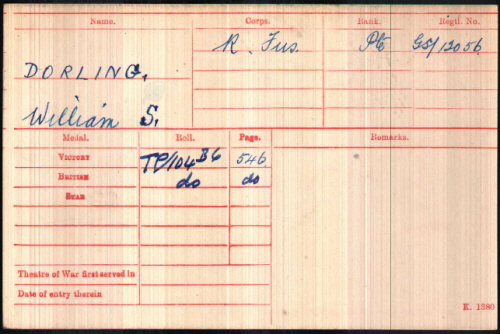 Name. Corps. Rank. Regtl. No.
R. Fus. Pte GS/12056
DORLING,
William S.
Medal. Roll. Page. Remarks.
VICTORY TP/104 B6 546
BRITISH do do
STAR
Theatre of War first served in
Date of entry therein
K. 1380